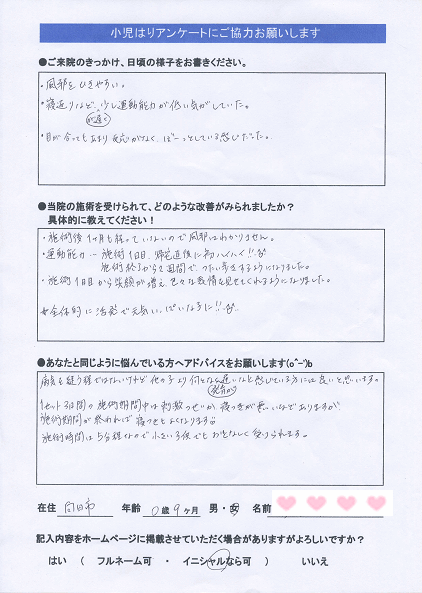 小児はりアンケートにご協力お願いします
●ご来院のきっかけ、日頃の様子をお書きください。
・風邪をひきやすい。
・寝返りなど、少し運動能力が低い気がしていた。
が遅く
・目が合ってもあまり反応がなく、ぼーっとしている感じだった。
●当院の施術を受けられて、どのような改善がみられましたか?
具体的に教えてください!
・施術後1ヶ月も経っていないので風邪はわかりません。
・運動能力…施術1回目、帰宅直後に初ハイハイ!!
施術終了から2週間で、つたい歩きするようになりました。
・施術1回目から笑顔が増え、色々な表情を見せてくれるようになりました。
全体的に活発で元気いっぱいな子に!!
●あなたと同じように悩んでいる方へアドバイスをお願いします(o^-')b
病気を疑う様ではないけど他の子より何となく遅いなと感じている方には良いと思います。
発育が
1セット3日間の施術期間中は刺激のせいか寝つきが悪い日もありますが
施術期間が終われば寝つきもよくなりますよ
施術時間は5分程なので小さい子供でもおとなしく受けられます。
在住 向日市 年齢 0歳9ヶ月 男・女 名前
記入内容をホームページに掲載させていただく場合がありますがよろしいですか?
はい ( フルネーム可 ・ イニシャルなら可 ) いいえ